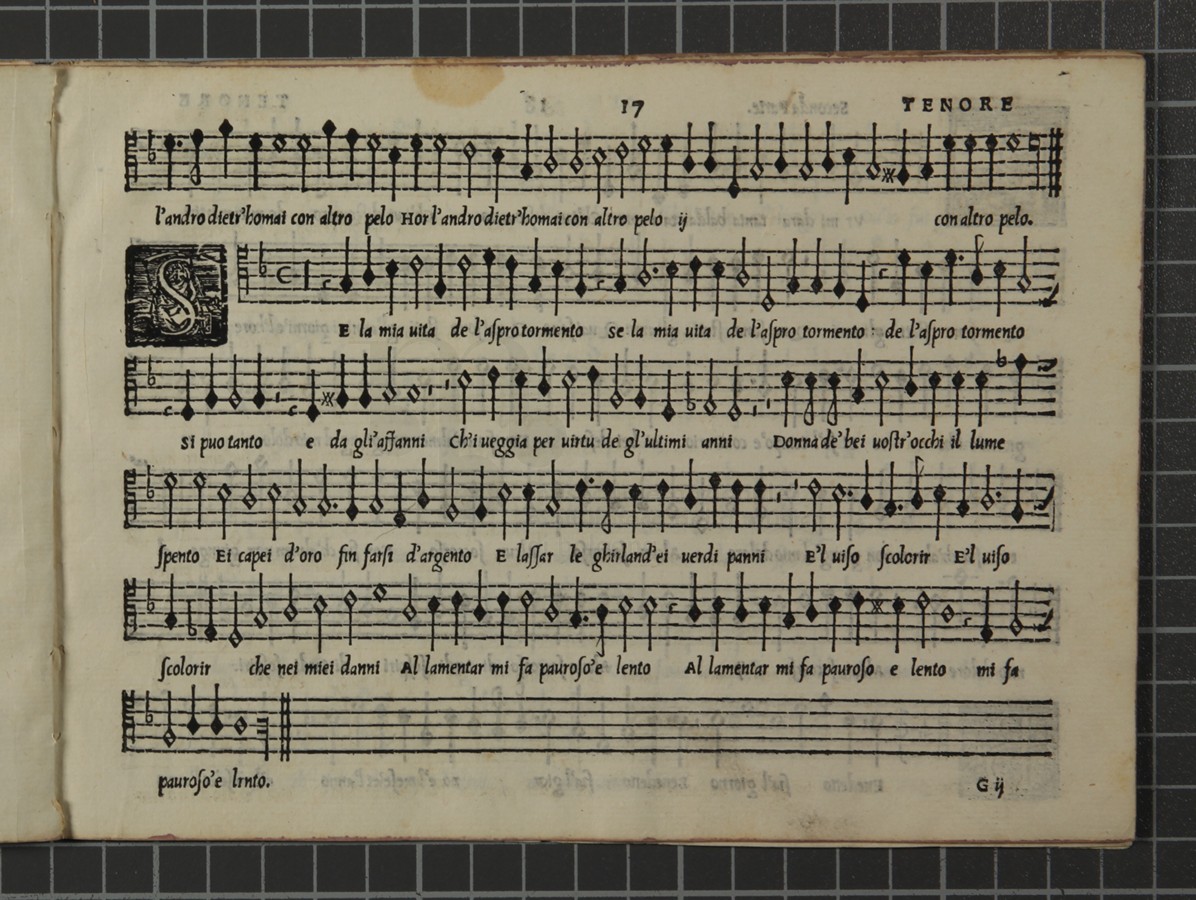 17 TENORE
l'andro dietr'homai con altro pelo Hor l'andro dietr'homai con altro pelo ij con altro pelo.
SE la mia uita de l'aſpro tormento se la mia uita de l'aſpro tormento : de l'aſpro tormento
Si puo tanto e da gli'affanni Ch'i ueggia per uirtu de gl'ultimi anni Donna de' bei uoſtr'occhi il lume
ſpento Ei capei d'oro fin farſi d'argento E laſſar le ghirland'ei uerdi panni E'l uiſo ſcolorir E'l uiſo
ſcolorir che nei miei danni Al lamentar mi fa pauroſo'e lento Al lamentar mi fa pauroſo e lento mi fa
pauroſo'e lrnto.
G ij